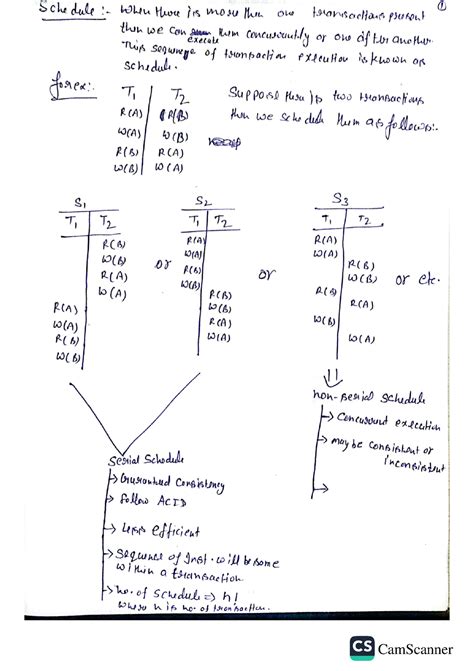 ①
Schedule :- When there is more then one transactions present
then we can execute them concurrently or one after another
This sequence of transaction execution is known as
schedule.
for ex:- T1 T2 Suppose there is two transactions
R(A) R(B) then we schedule them as follows:-
W(A) W(B)
R(B) R(A)
W(B) W(A)
S1 S2 S3
T1 T2 T1 T2 T1 T2
R(B) R(A) R(A)
W(B) W(A) W(A)
R(A) or R(B) or R(B) or etc.
W(A) W(B) W(B)
R(A) R(B) R(B)
W(A) W(B) R(A)
R(B) R(A) W(B)
W(B) W(A) W(A)
non-serial schedule
→ Concurrent execution
→ may be consistent or
inconsistent
→
Serial Schedule
→ Guranteed Consistency
→ follow ACID
→ Less efficient
→ Sequence of Inst. will be same
within a transaction
→ no. of schedule => n!
where n is no. of transaction.
CS CamScanner